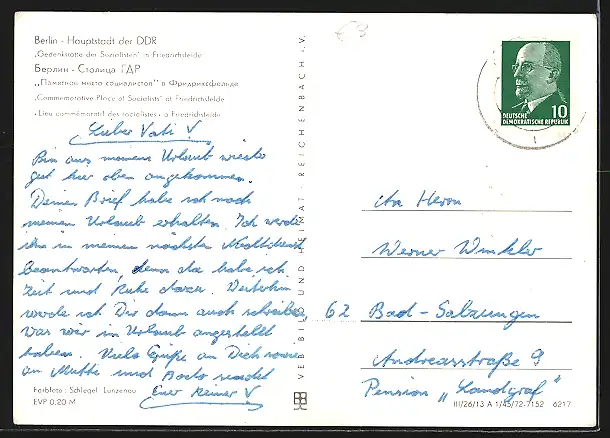 Berlin - Hauptstadt der DDR
„Gedenkstätte der Sozialisten" in Friedrichsfelde
Берлин - Столица ГДР
„Памятное место социалистов" в Фридрихсфельде
„Commemorative Place of Socialists" at Friedrichsfelde
„Lieu commémoratif des socialistes" à Friedrichsfelde
Lieber Vati!
Bin aus meinem Urlaub wieder
gut hier oben angekommen.
Deinen Brief habe ich noch
meinem Urlaub erhalten. Ich werde
ihn in meinem nächsten Nachtdienst
beantworten, denn da habe ich
Zeit und Ruhe dazu. Weiterhin
werde ich Dir dann auch schreiben,
was wir im Urlaub angestellt
haben. Viele Grüße an Dich sowie
an Mutti und
Euer Reiner
Farbfoto: Schlegel, Lunzenau
EVP 0,20 M
VEB BILD UND HEIMAT · REICHENBACH i. V.
DEUTSCHE
DEMOKRATISCHE REPUBLIK
10
Herrn
Werner Winkler
62 Bad-Salzungen
Andreasstraße 9
Pension „Landgraf"
III/26/13 A 1/45/72-7152 6217